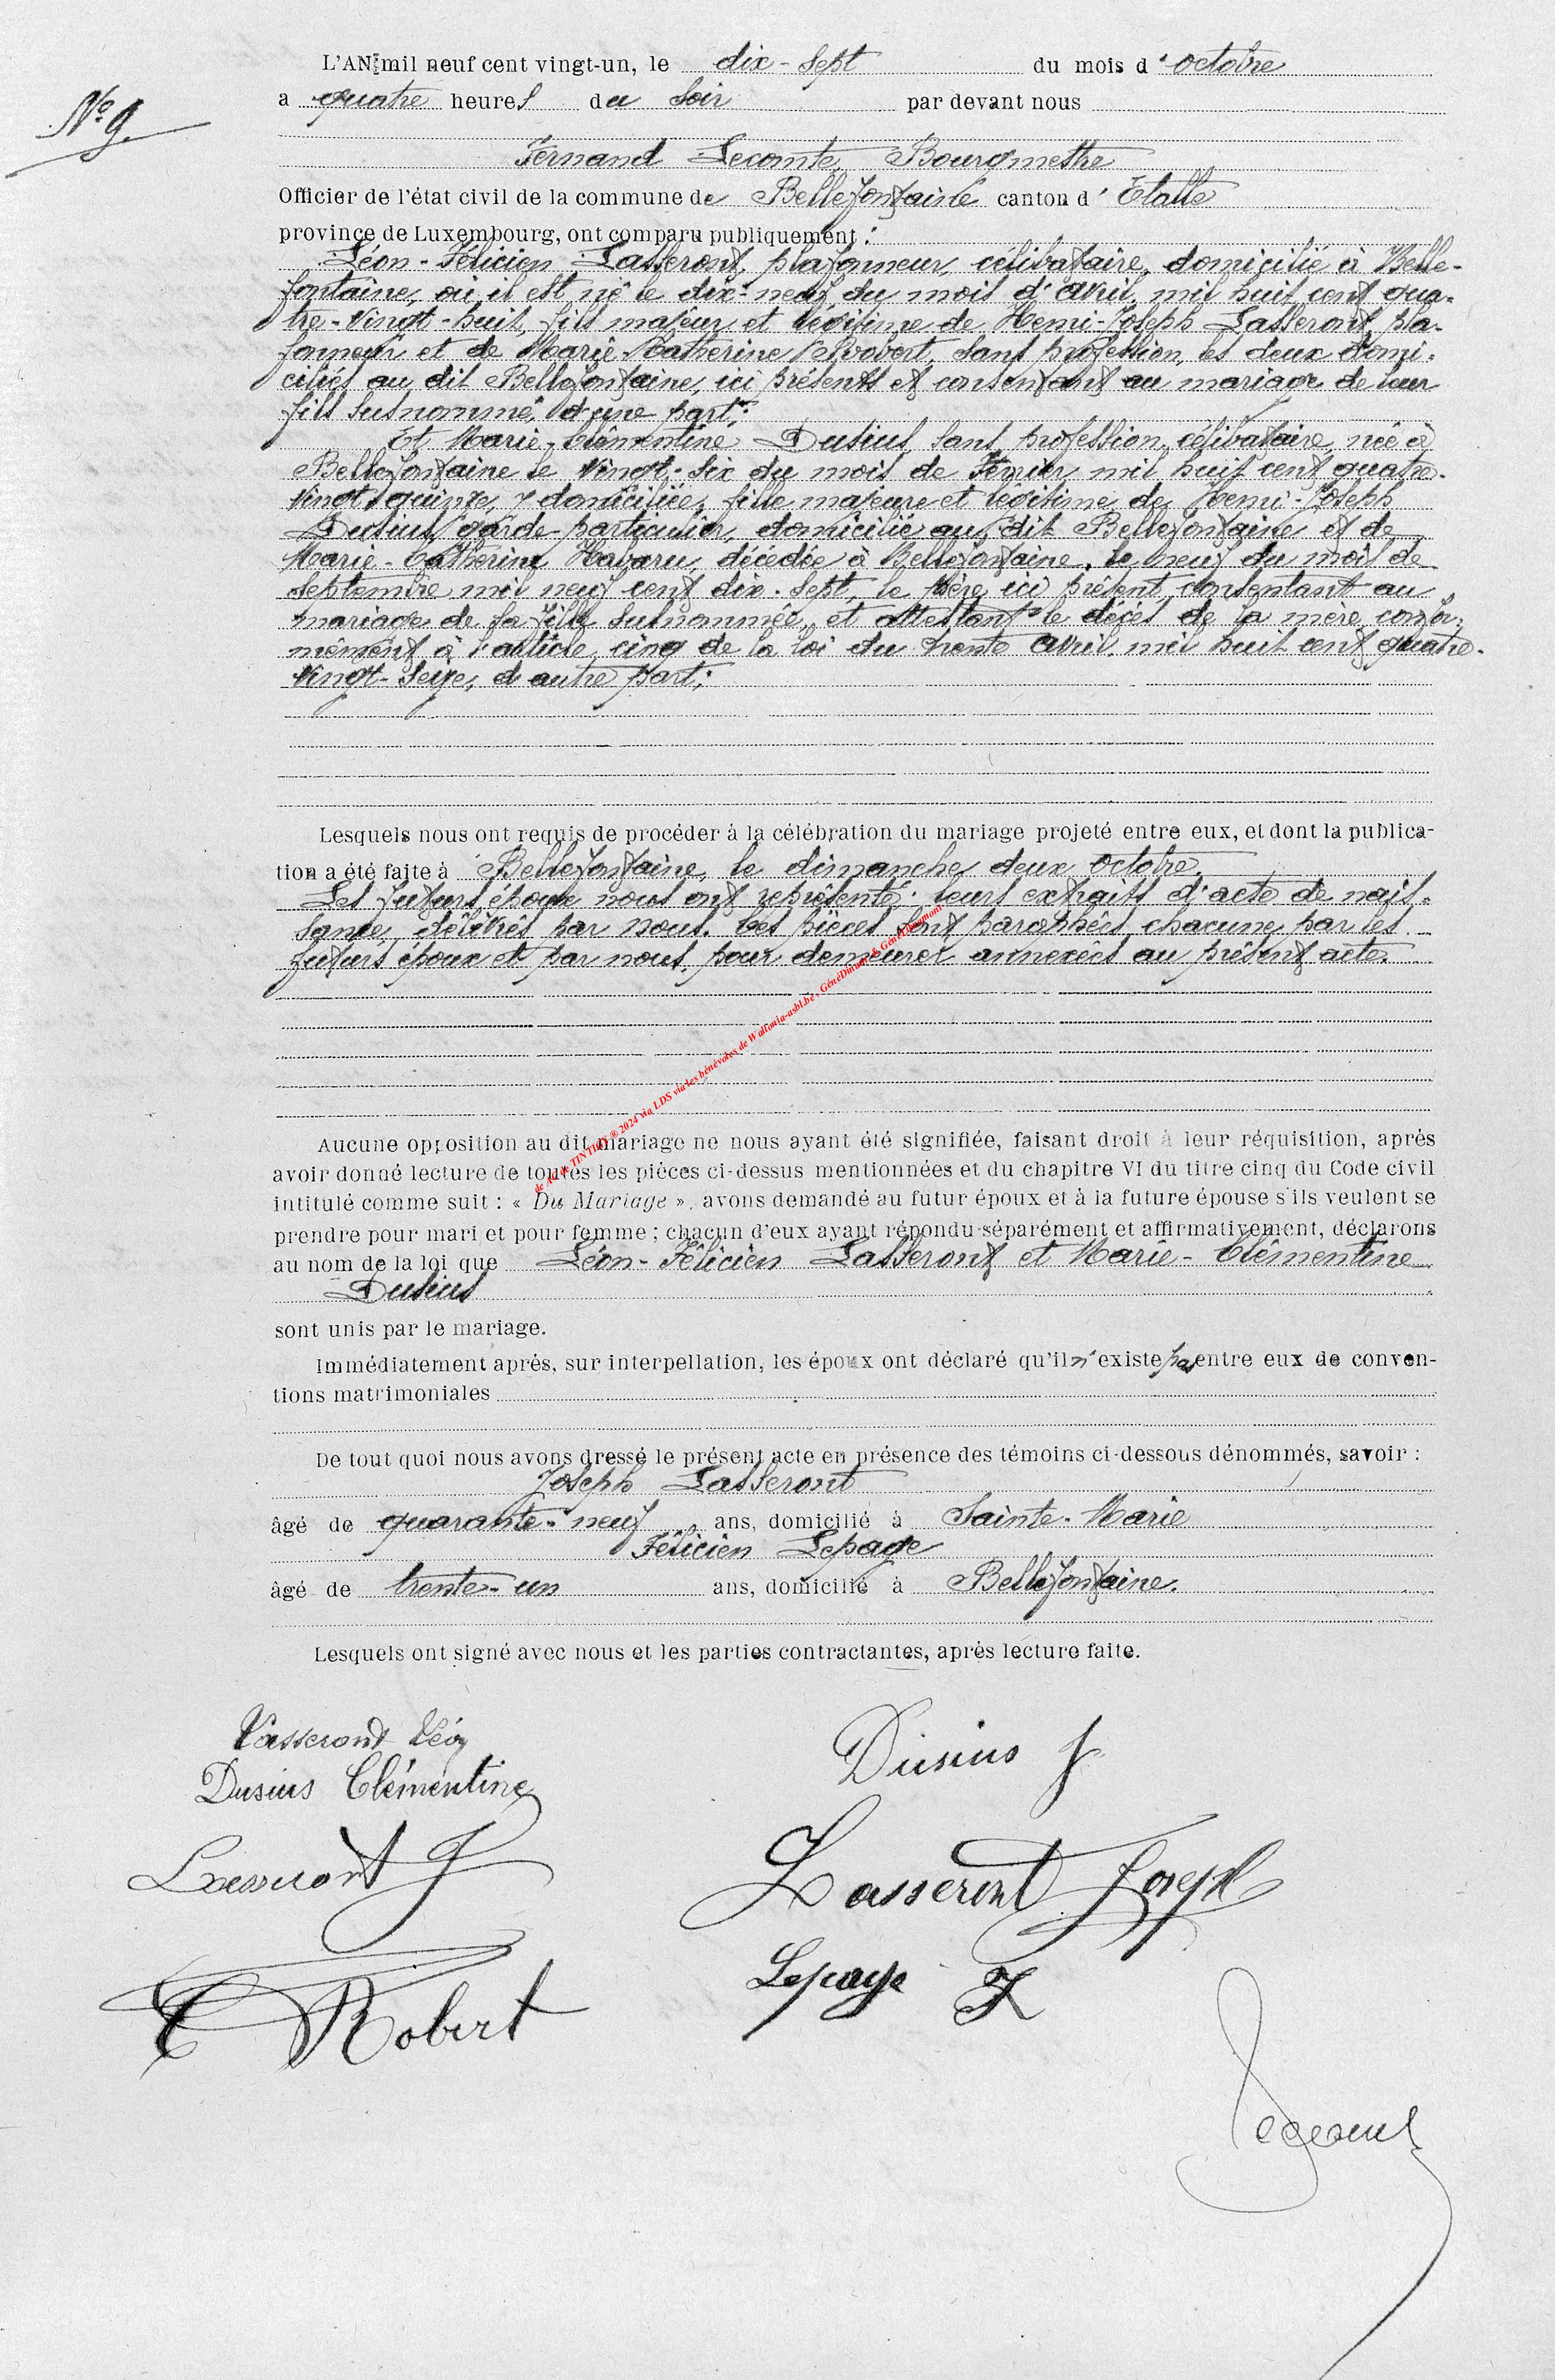 L'AN mil neuf cent vingt-un, le dix-sept du mois d'octobre
N° 9
a quatre heures du soir par devant nous
Fernand Lecomte, Bourgmestre
Officier de l'état civil de la commune de Bellefontaine canton d'Etalle
province de Luxembourg, ont comparu publiquement :
Léon-Félicien Lasseront, plafonneur, célibataire, domicilié à Belle-
fontaine, où il est né le dix-neuf du mois d'avril mil huit cent qua-
tre-vingt-huit, fils majeur et légitime de Henri-Joseph Lasseront, pla-
fonneur et de Marie-Catherine Robert, sans profession, les deux domi-
ciliés au dit Bellefontaine, ici présents et consentant au mariage de leur
fils susnommé, d'une part;
Et Marie-Clémentine Dusius, sans profession, célibataire, née à
Bellefontaine le vingt-six du mois de Février mil huit cent quatre-
vingt quinze, y domiciliée, fille majeure et légitime de Henri-Joseph
Dusius, garde-particulier, domicilié au dit Bellefontaine et de
Marie-Catherine Habaru, décédée à Bellefontaine, le neuf du mois de
septembre mil neuf cent dix-sept, le père ici présent consentant au
mariage de sa fille susnommée, et attestant le décès de la mère, confor-
mément à l'article cinq de la loi du trente avril mil huit cent quatre-
vingt-seize, d'autre part;
Lesquels nous ont requis de procéder à la célébration du mariage projeté entre eux, et dont la publica-
tion a été faite à Bellefontaine, le dimanche deux octobre.
Les futurs époux nous ont représenté leurs extraits d'acte de nais-
sance, délivrés par nous. Ces pièces sont paraphées chacune par les
futurs époux et par nous, pour demeurer annexées au présent acte.
de AGL de TINTIGNY ® 2024 via LDS via les bénévoles de Wallonia-asbl.be , GénéDinant & GénéDinamont
Aucune opposition au dit mariage ne nous ayant été signifiée, faisant droit à leur réquisition, après
avoir donné lecture de toutes les pièces ci-dessus mentionnées et du chapitre VI du titre cinq du Code civil
intitulé comme suit : « Du Mariage », avons demandé au futur époux et à la future épouse s'ils veulent se
prendre pour mari et pour femme ; chacun d'eux ayant répondu séparément et affirmativement, déclarons
au nom de la loi que Léon-Félicien Lasseront et Marie-Clémentine
Dusius
sont unis par le mariage.
Immédiatement après, sur interpellation, les époux ont déclaré qu'il n'existe pas entre eux de conven-
tions matrimoniales
De tout quoi nous avons dressé le présent acte en présence des témoins ci-dessous dénommés, savoir :
Joseph Lasseront
âgé de quarante-neuf ans, domicilié à Sainte-Marie
Félicien Lepage
âgé de trente-un ans, domicilié à Bellefontaine.
Lesquels ont signé avec nous et les parties contractantes, après lecture faite.
Lasseront Léon
Dusius J
Dusius Clémentine
Lasseront J
Lasseront Joseph
Lepage F
C Robert
Lecomte